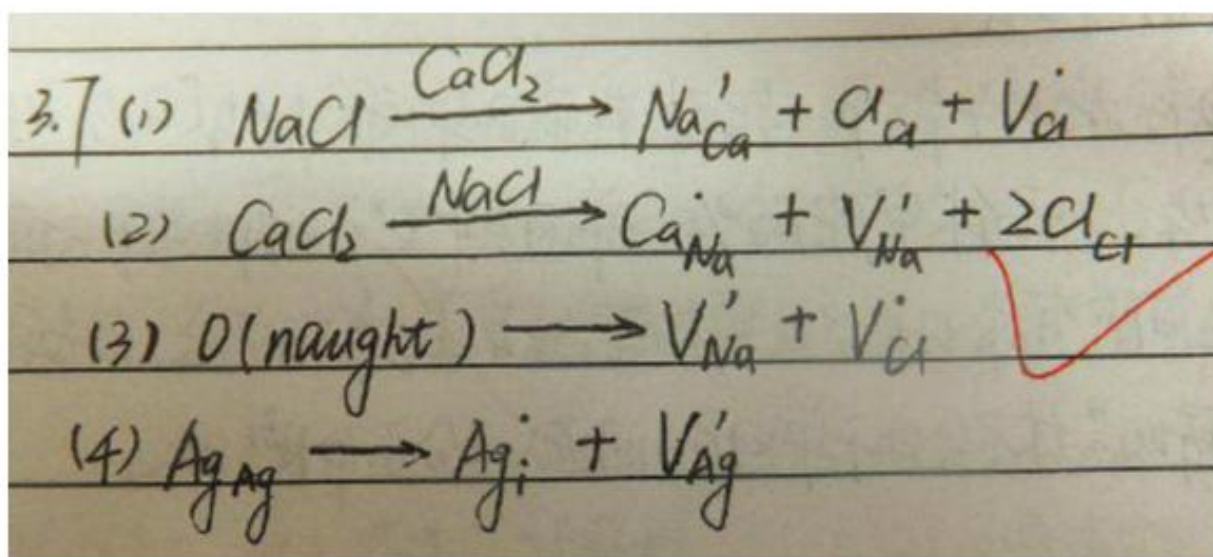 3.7 (1) NaCl —CaCl₂→ Na'_Ca + Cl_Cl + V˙_Cl
(2) CaCl₂ —NaCl→ Ca˙_Na + V'_Na + 2Cl_Cl
(3) O(naught) → V'_Na + V˙_Cl
(4) Ag_Ag → Ag˙_i + V'_Ag